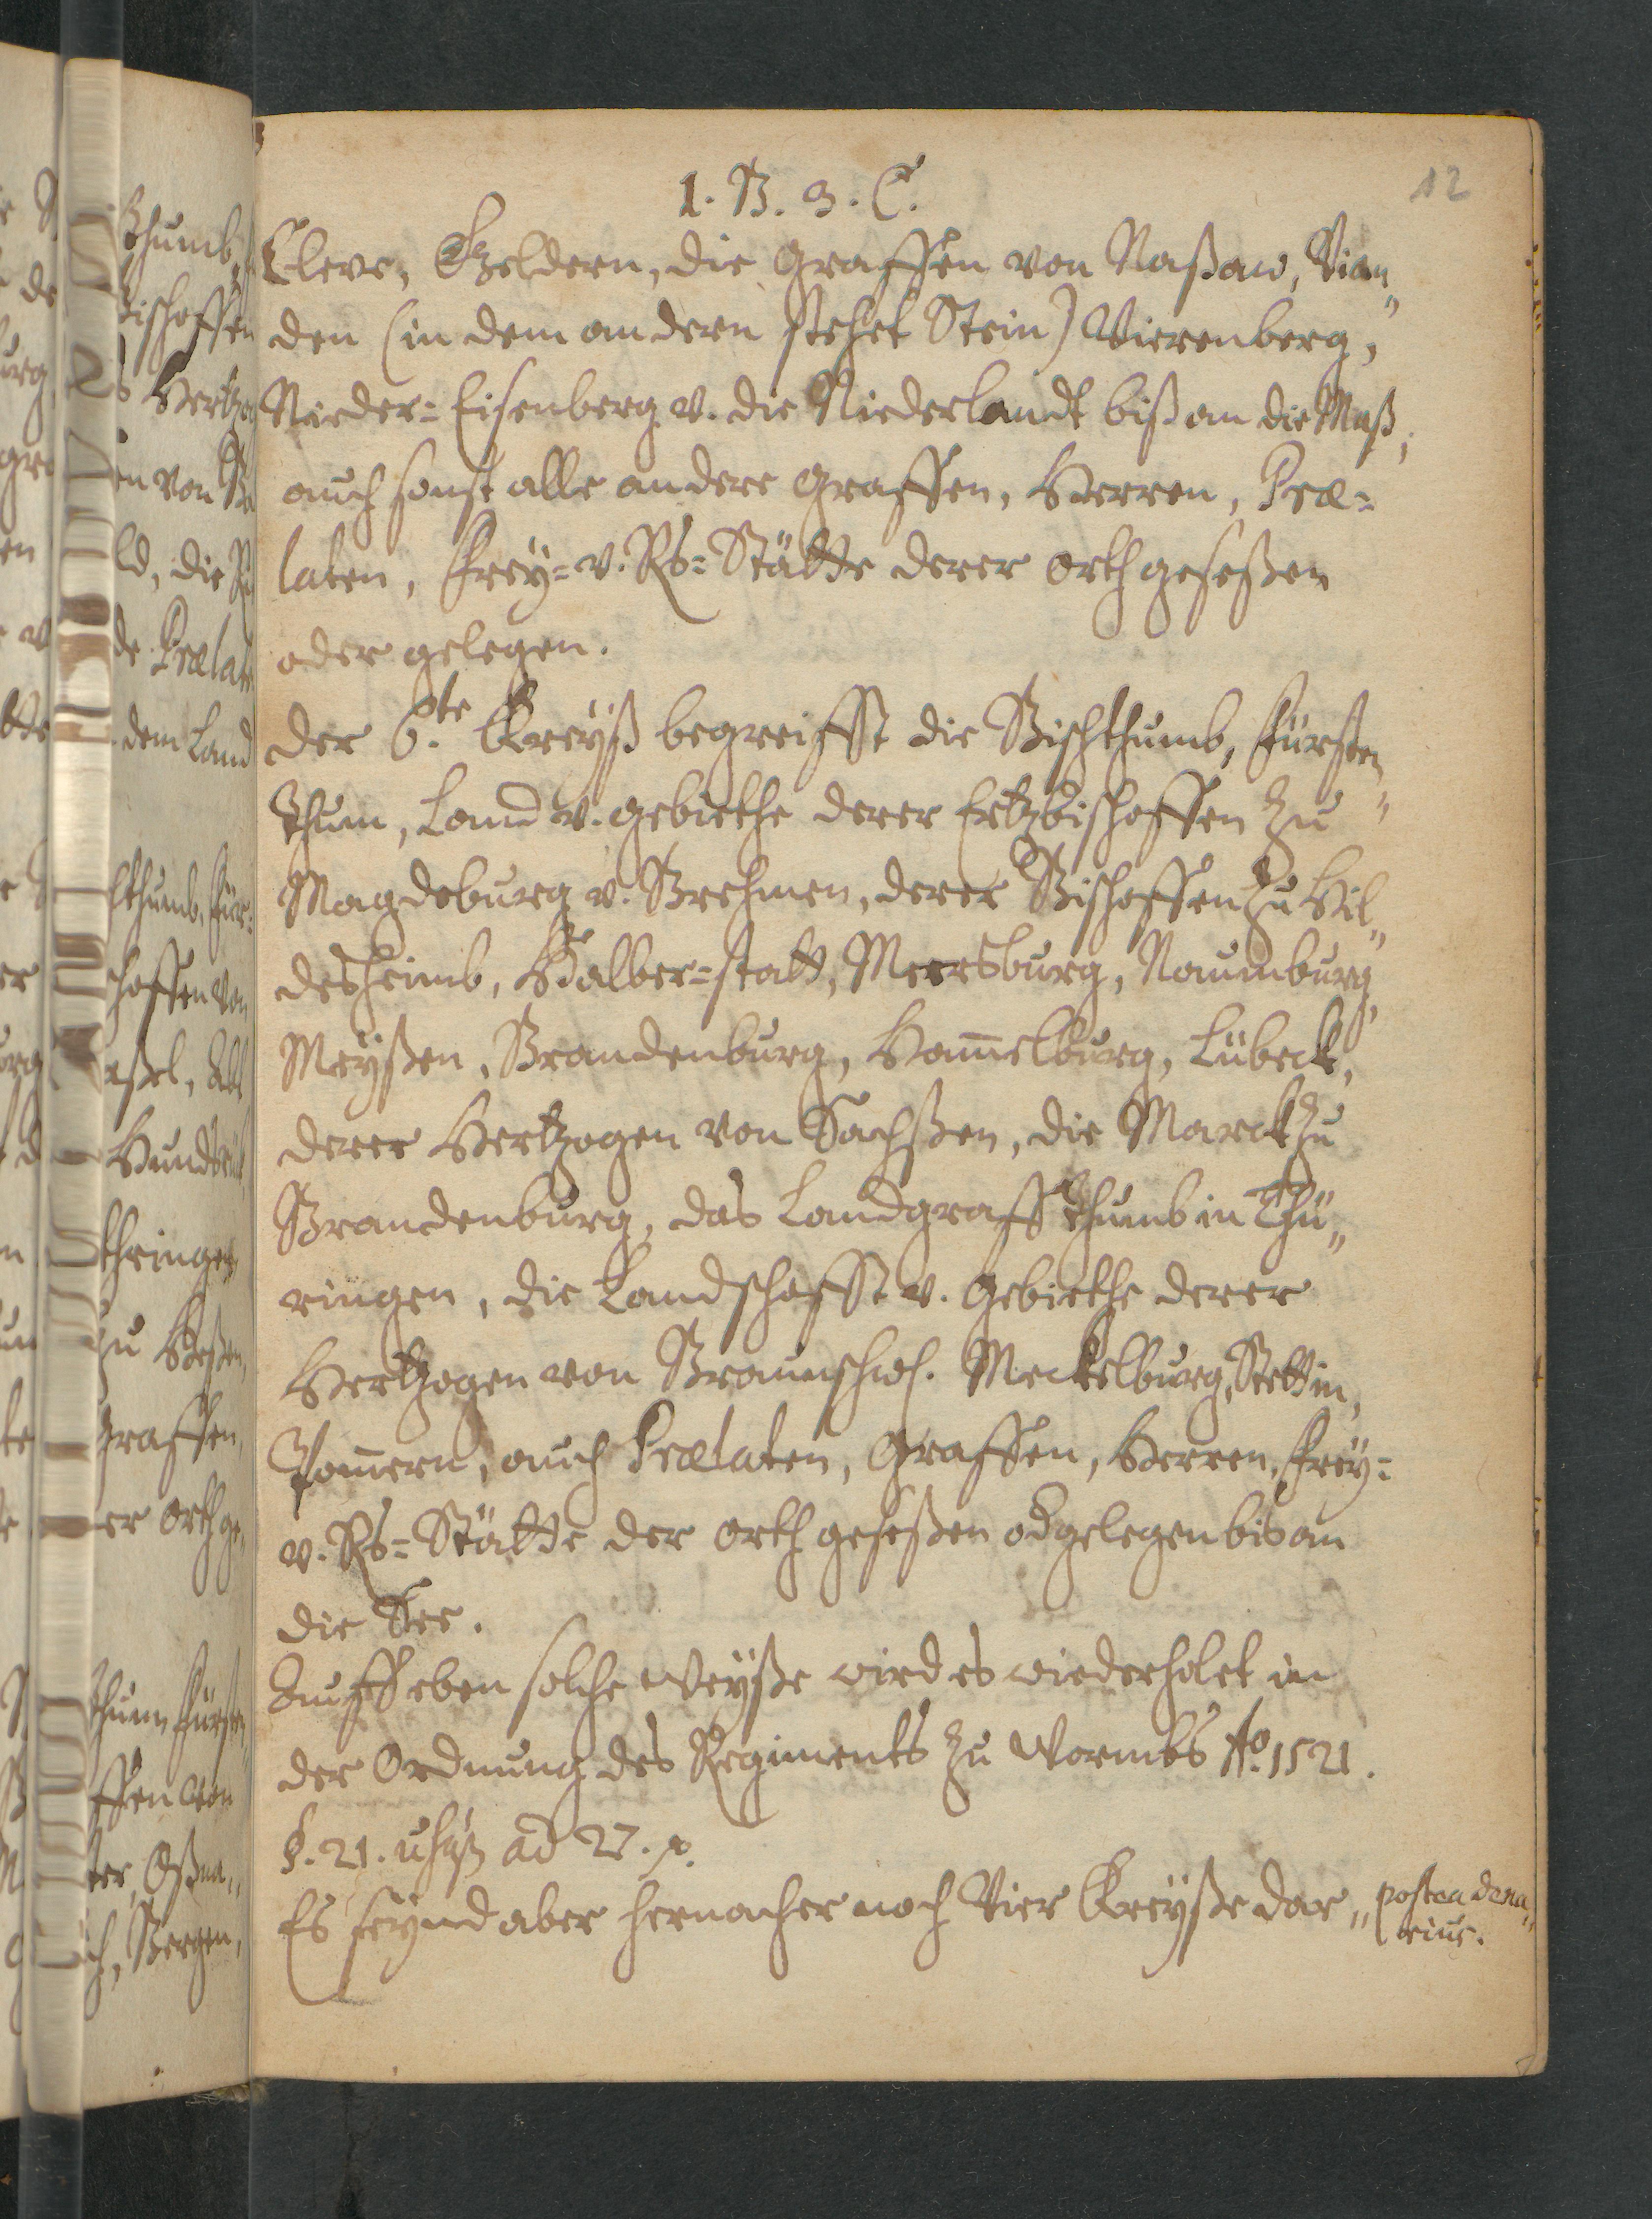 12
1. B. 3. C.
Cleve, Geldern, die Graffen von Naßaw, Vian„
den (in dem andern stehet Stein) Vierenberg,
Nieder=Eisenberg v. die Niederlandt biß an die Maß,
auch sonst alle andere Graffen, Herren, Præ=
laten, Frey= v. Rs=Stätte derer orth geseßen
oder gelegen.
Der 6.te Kreyß begreifft die Bischthumb, Fürsten„
thum, Land v. Gebiethe derer Ertzbischoffen zu
Magdeburg v. Brehmen, derer Bischoffen zu Hil„
desheimb, Halber=statt, Meersburg, Naumburg,
Meyßen, Brandenburg, Ham̄elburg, Lübeck,
derer Hertzogen von Sachßen, die Marck zu
Brandenburg, das Landgraffthumb in Thü„
ringen, die Landschafft v. Gebiethe derer
Hertzogen von Braunschw. Meckelburg, Stettin,
Pom̄ern, auch Prælaten, Graffen, Herren, Frey=
v. Rs=Stätte der orth geseßen od gelegen bis an
die See.
Auff eben solche Weyße wird es wiederholet in
der Ordnung des Regiments zu Wormbs Ao. 1521.
§. 21. ad 27.
Es seynd aber hernacher noch Vier Kreyße dar„
postea dena„
rius.